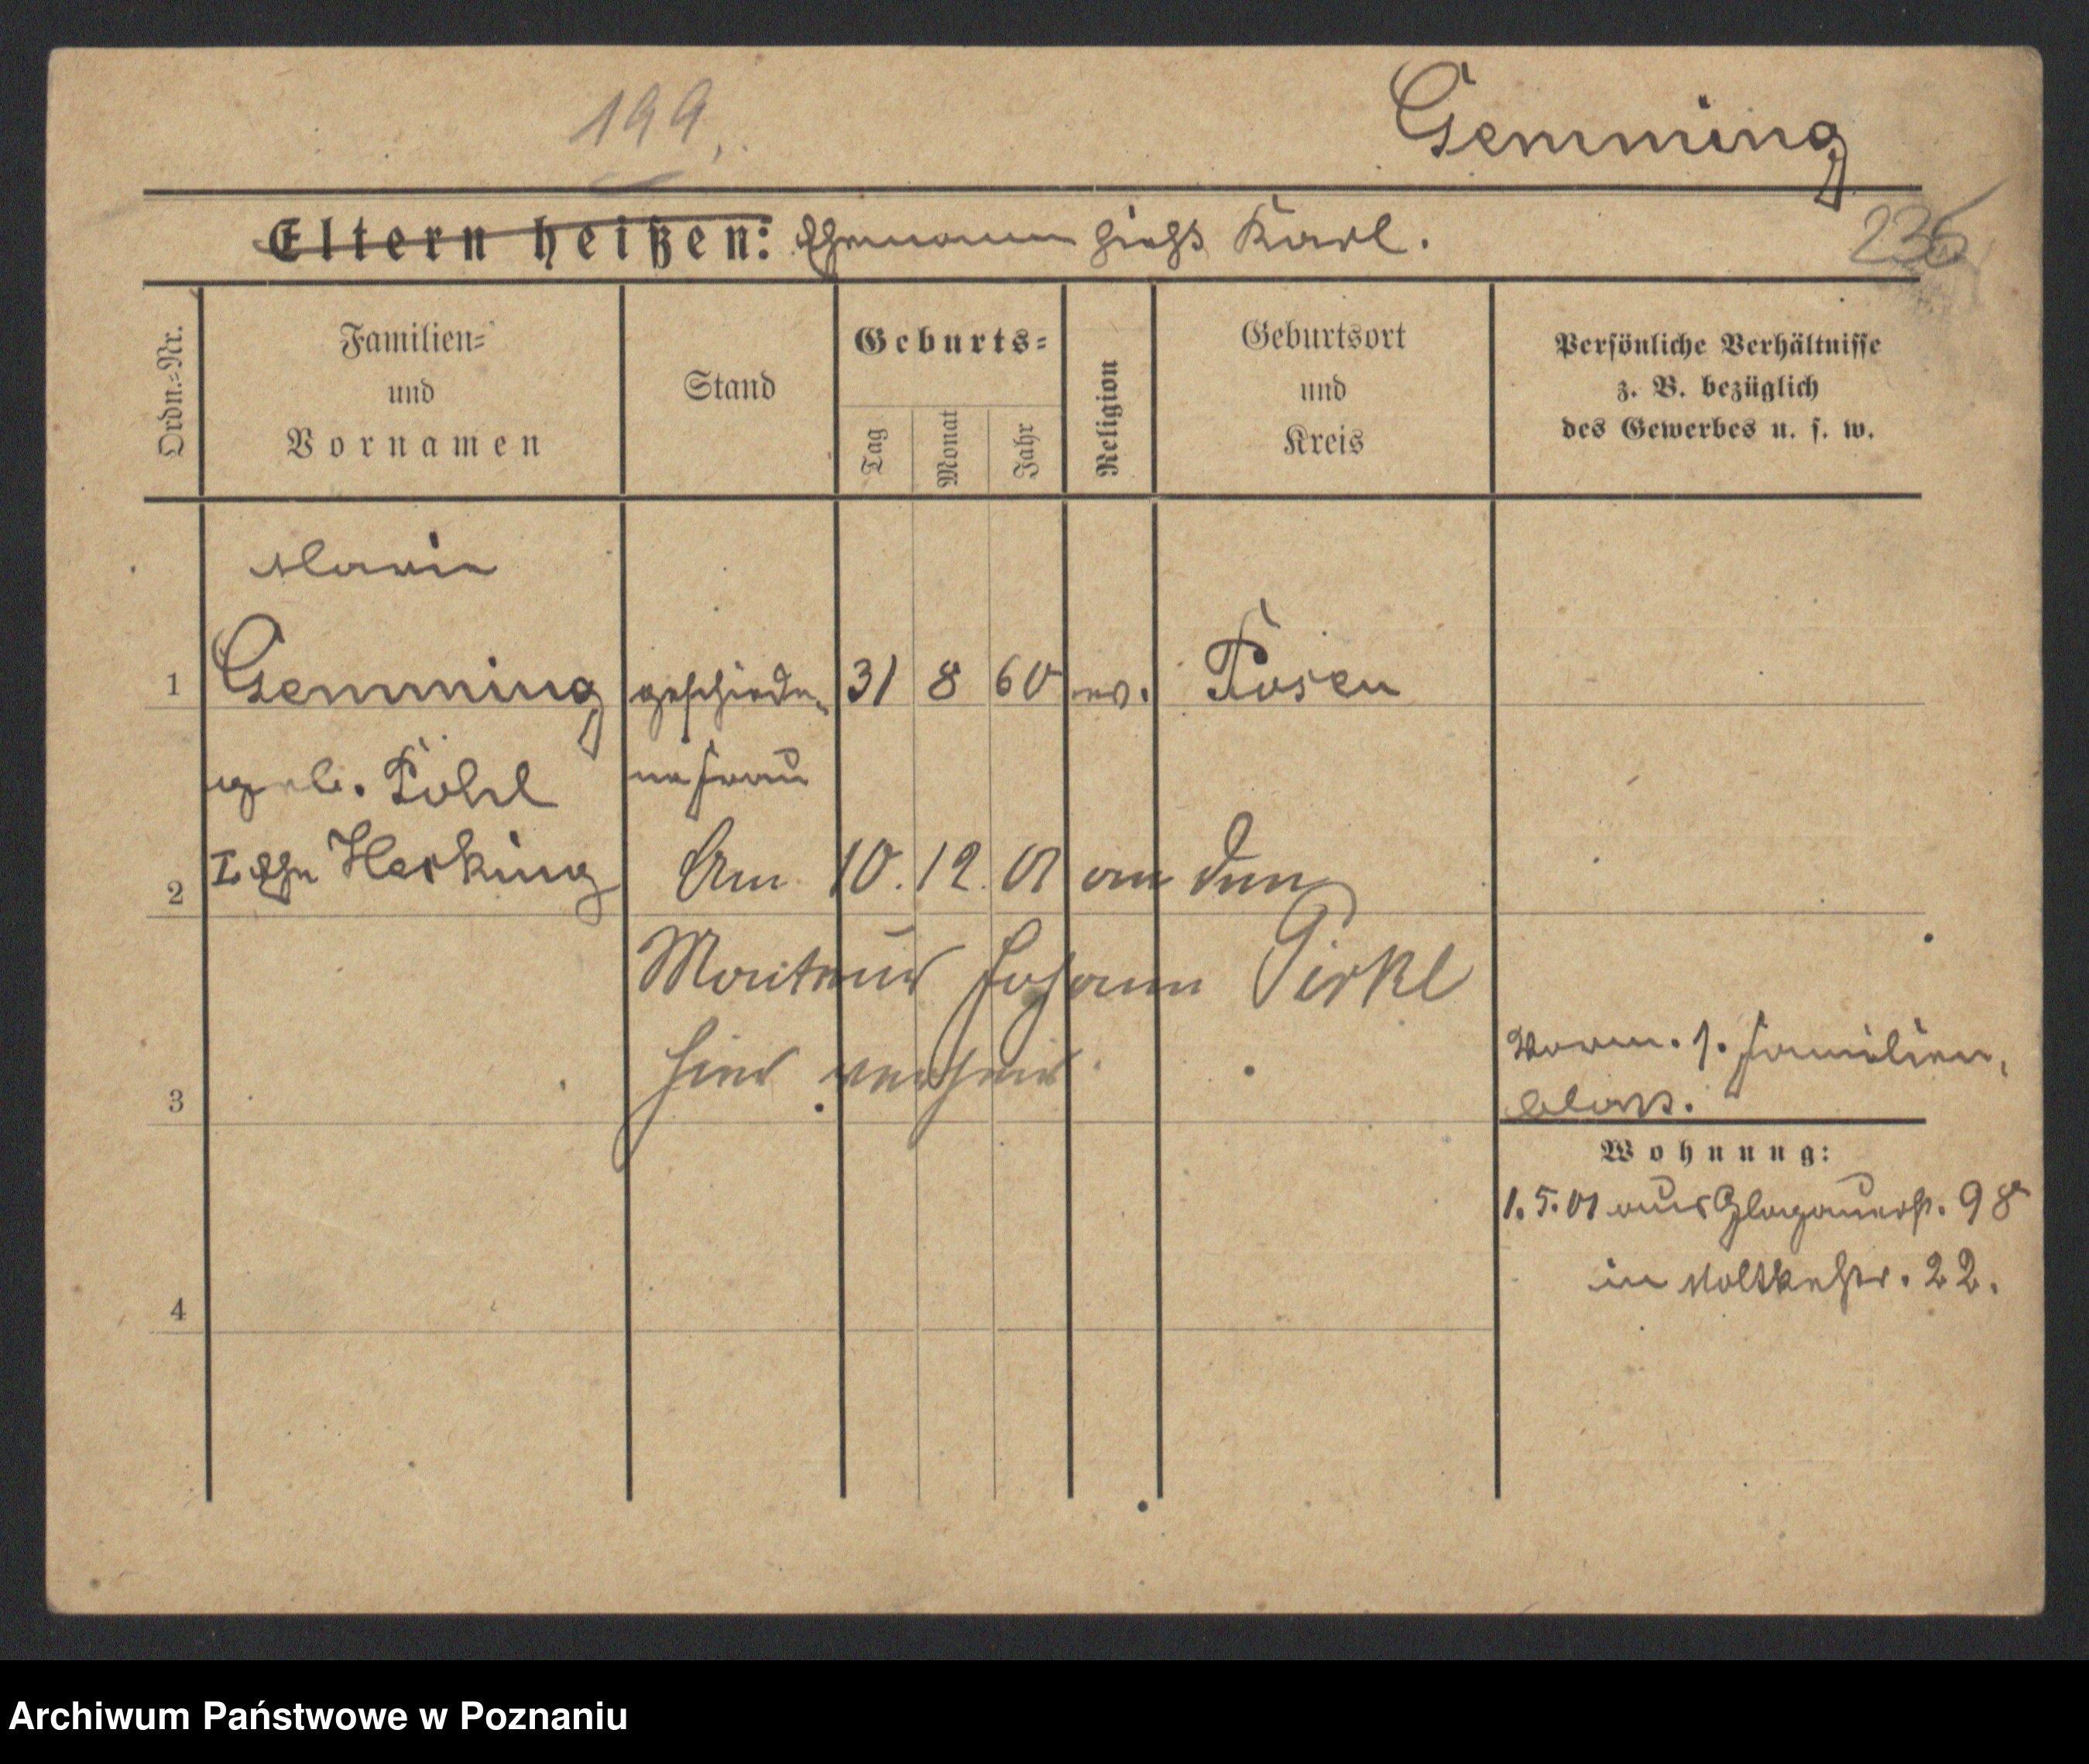 199.
Gemming
Eltern heißen: Ehemann hieß Karl.
236
Ordn.-Nr.
Familien-
und
Vornamen
Stand
Geburts-
Tag
Monat
Jahr
Religion
Geburtsort
und
Kreis
Persönliche Verhältnisse
z. B. bezüglich
des Gewerbes u. s. w.
Marie
1 Gemming geschiede- 31 8 60 ev. Posen
geb. Pohl ne Frau
2 I. Ehe Herking Am 10. 12. 01 an den
Monteur Johann Pirkl
hier verheir.
3
Verm. 1. Familien,
blatt.
Wohnung:
1. 5. 01 aus Glogauerstr. 98
in Moltkestr. 22.
4
Archiwum Państwowe w Poznaniu